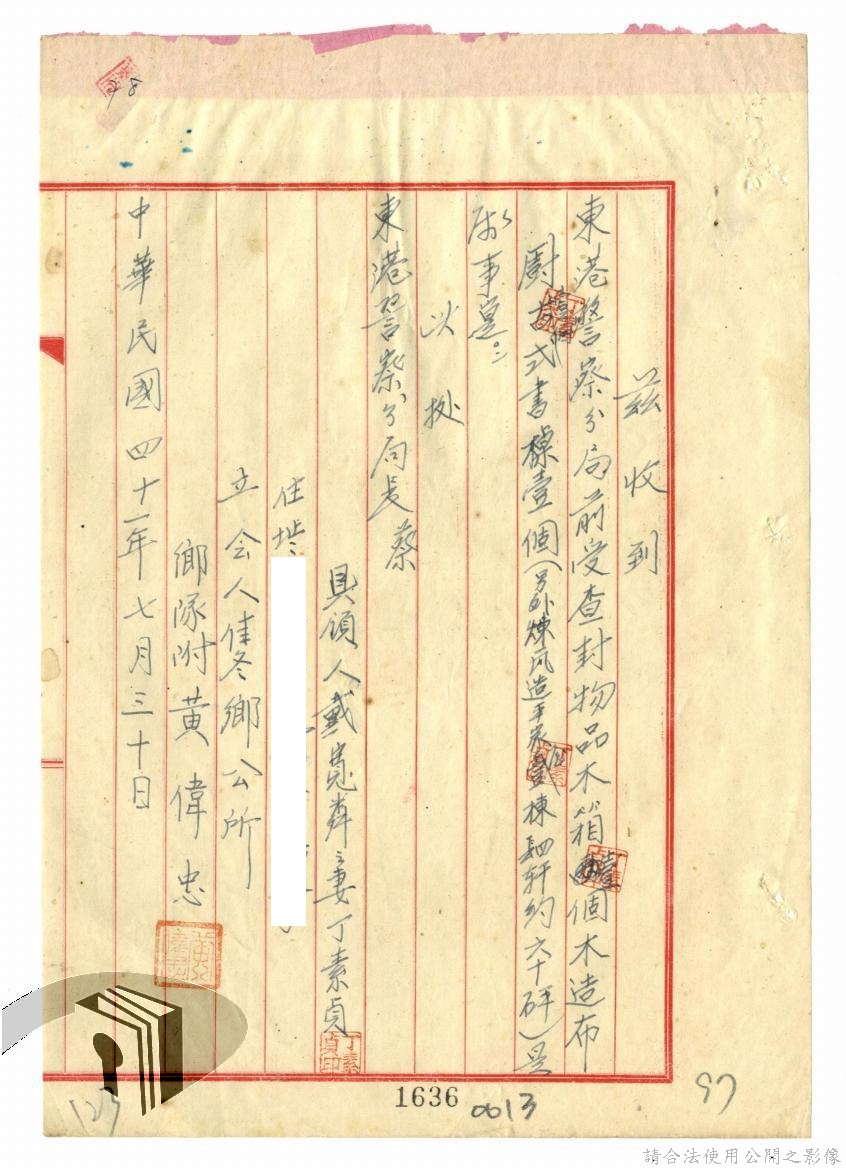 茲收到
東港警察分局前受查封物品木箱壹個木造布
廚壹個式書棹壹個(另外煉瓦造平家壹棟四軒約六十砰)是
所事實。
以 拠
東港警察分局長蔡
具領人戴寬之妻丁素貞
住址
立会人佳冬鄉公所
鄉隊附黃偉忠
中華民國四十一年七月三十日
丁素貞印
1636
0013
97
123
請合法使用公開之影像